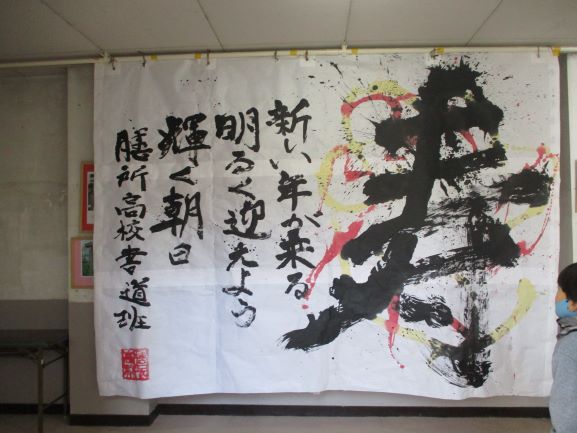 寿
新い年が来る
明るく迎えよう
輝く朝日
膳所高校書道班